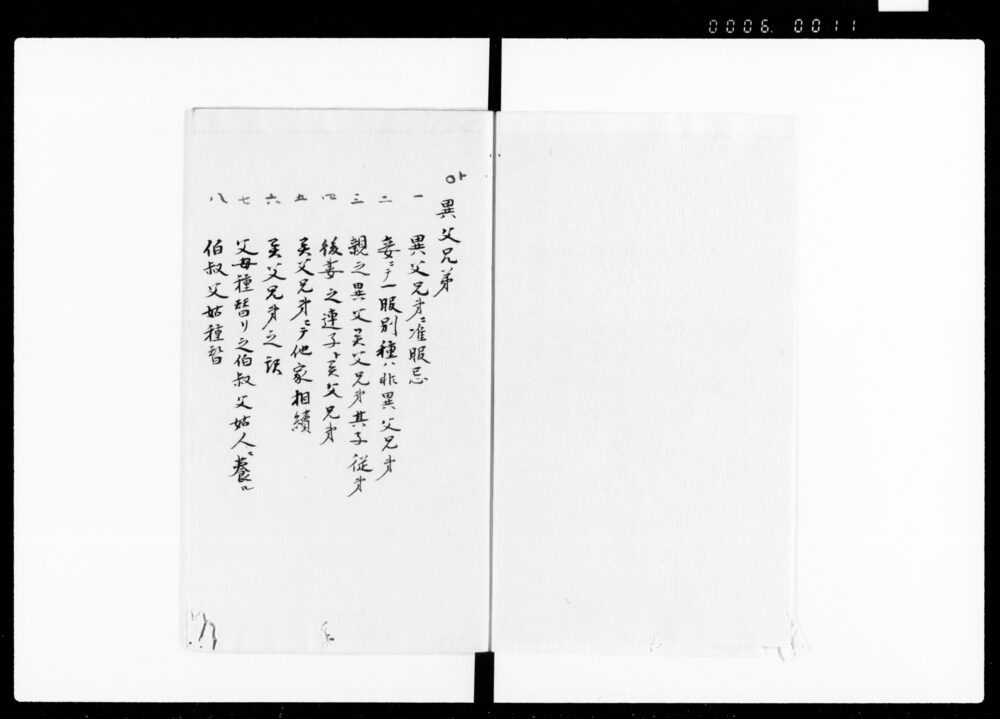 0006. 0011
異父兄弟
一 異父兄弟ニ准服忌
二 妾ニテ一服別種ハ非異父兄弟
三 親之異父異父兄弟其子従弟
四 後妻之連子ト異父兄弟
五 異父兄弟ニテ他家相續
六 異父兄弟之
七 父母種替リ之伯叔父姑人ニ養ハ
八 伯叔父姑種替